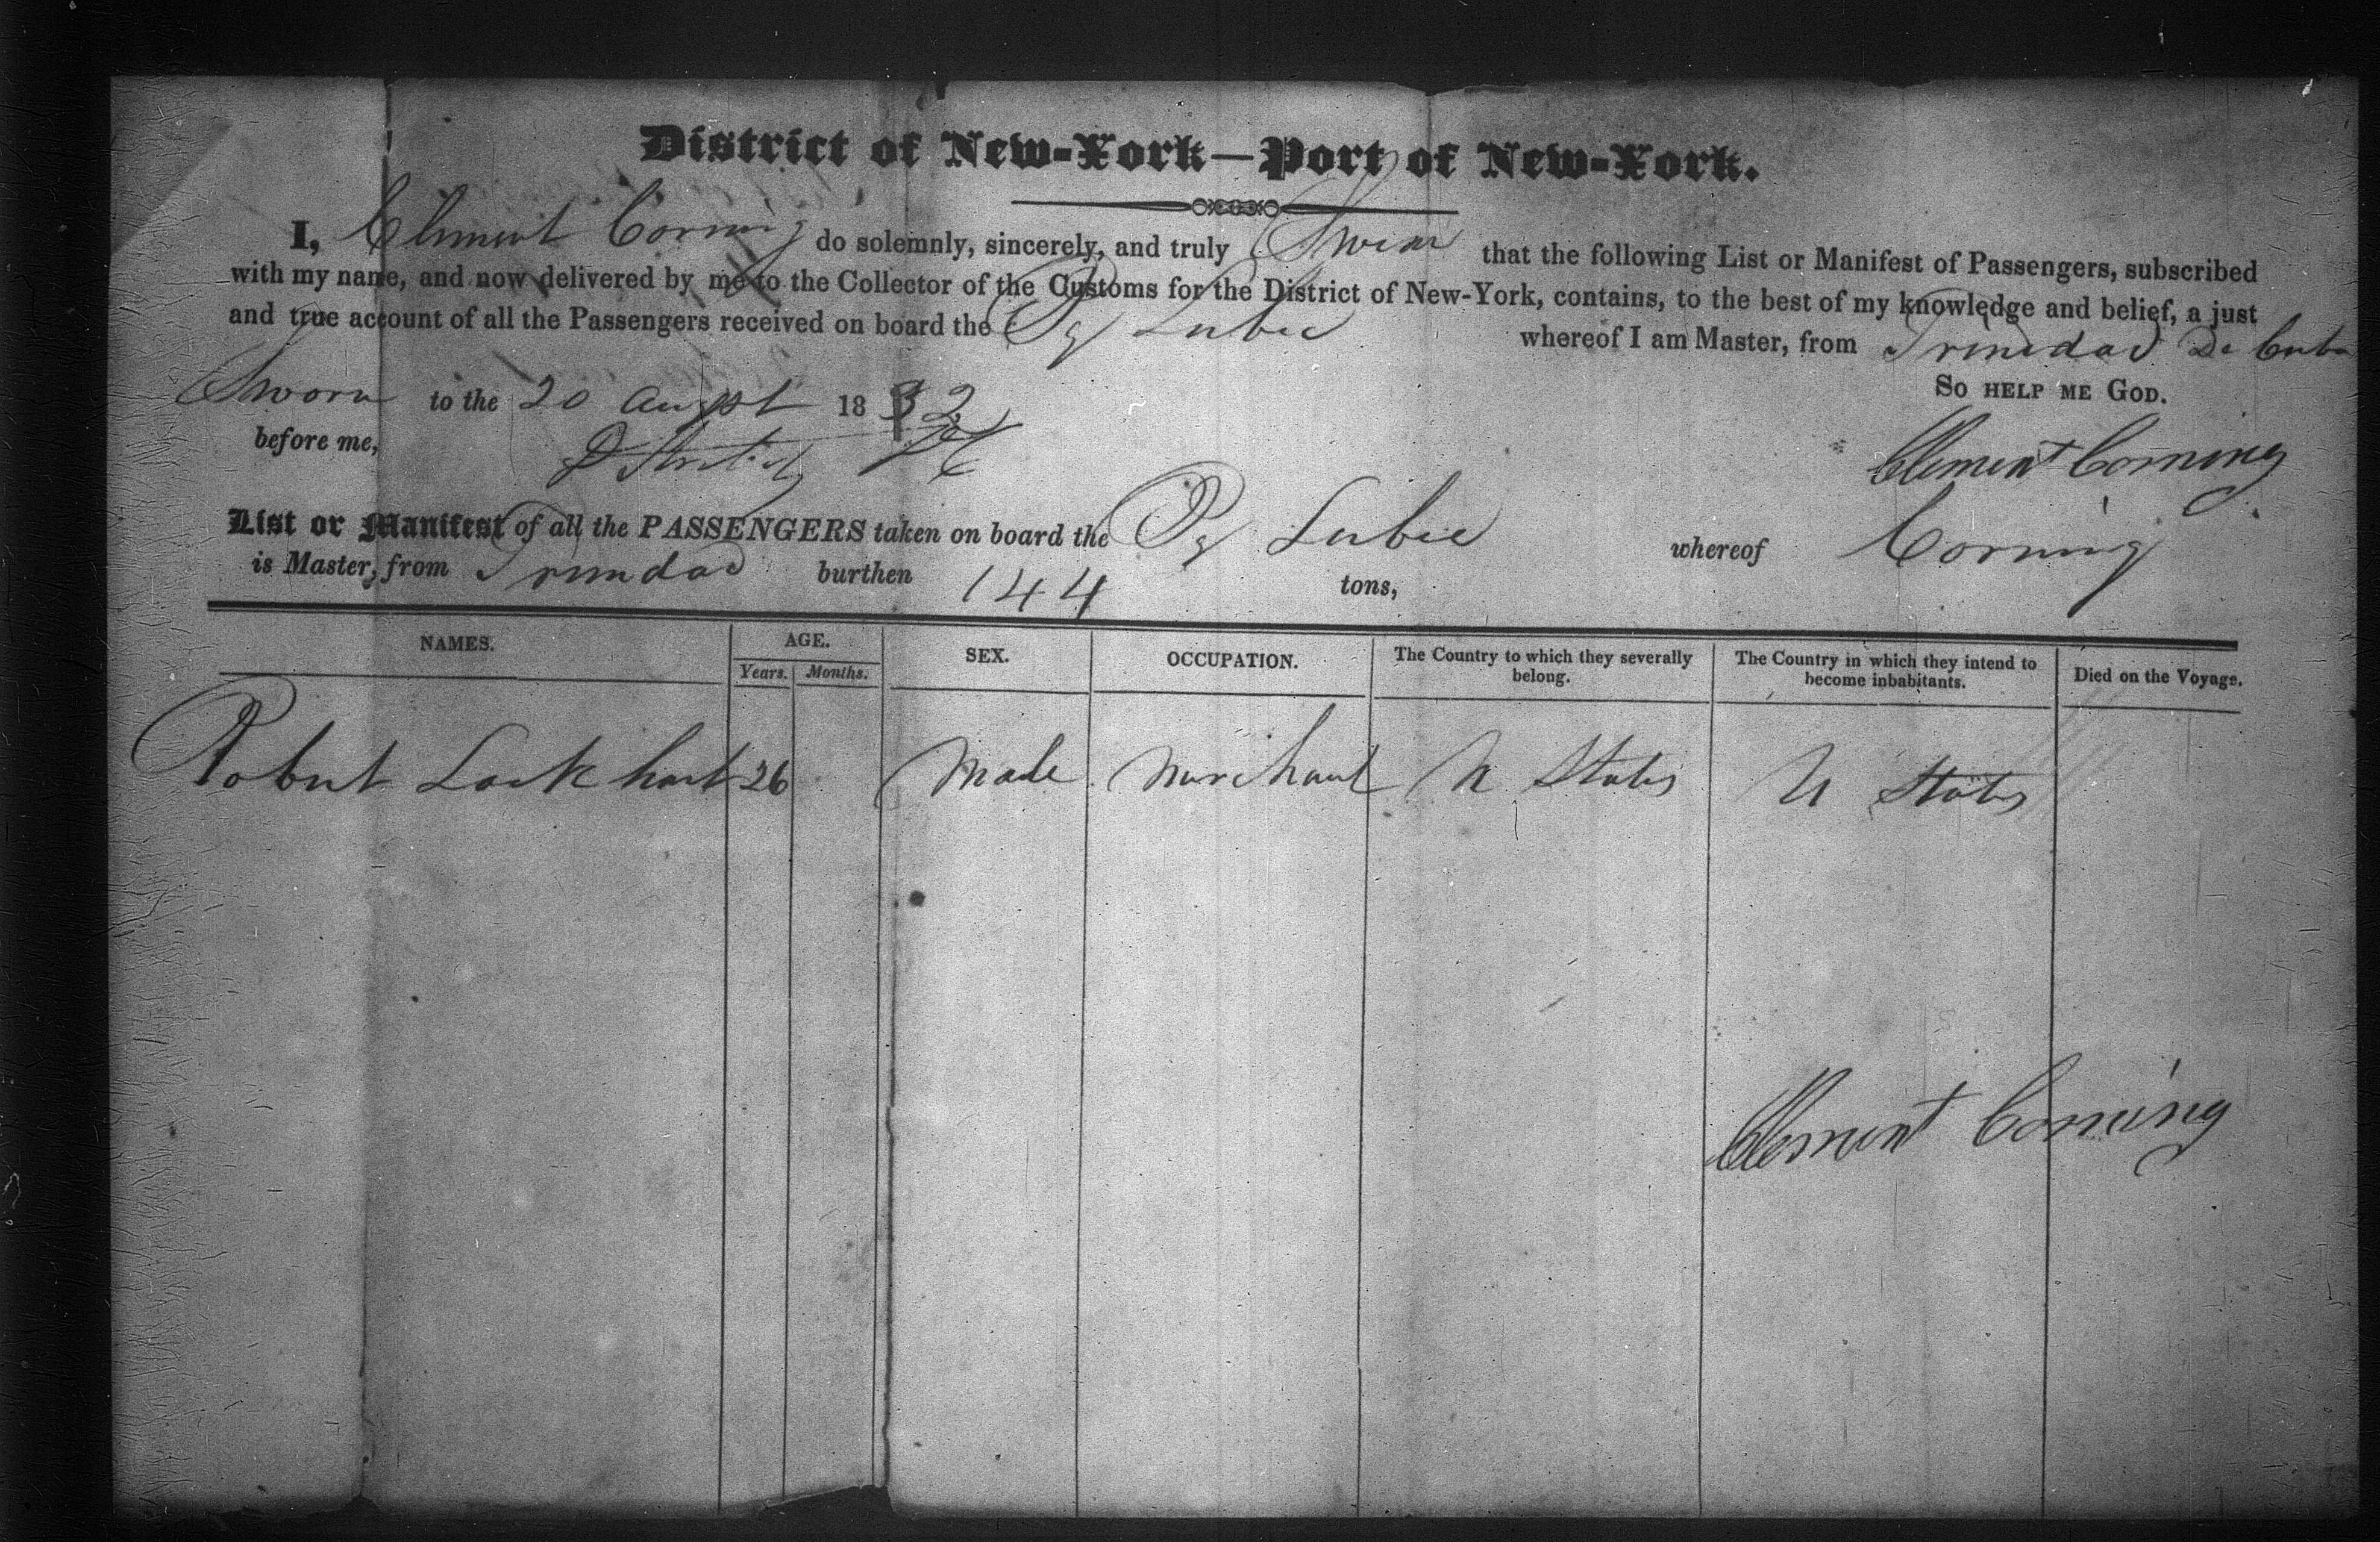 District of New-York—Port of New-York.
I, Clement Corning do solemnly, sincerely, and truly Swear that the following List or Manifest of Passengers, subscribed
with my name, and now delivered by me to the Collector of the Customs for the District of New-York, contains, to the best of my knowledge and belief, a just
and true account of all the Passengers received on board the Bg Lubec whereof I am Master, from Trinidad De Cuba
Sworn to the 20 August 1832 So help me God.
before me, Clement Corning
List or Manifest of all the PASSENGERS taken on board the Bg Lubec whereof Corning
is Master, from Trinidad burthen 144 tons,
NAMES. AGE. SEX. OCCUPATION. The Country to which they severally belong. The Country in which they intend to become inhabitants. Died on the Voyage.
Years. Months.
Robert Lockhart 26 Male Merchant U States U States
Clement Corning